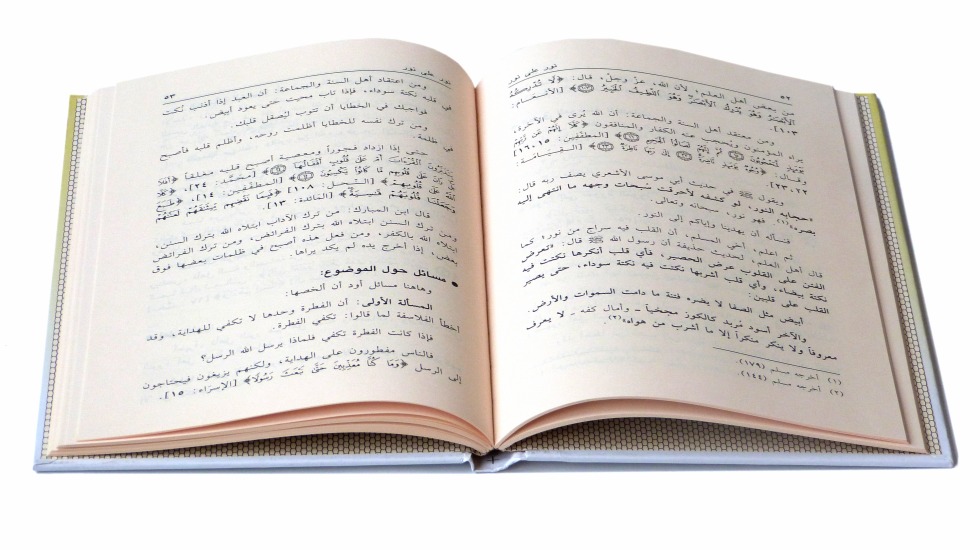 ٥٢
نور على نور
من بعض أهل العلم، لأن الله، عزّ وجلّ، قال: ﴿لَّا تُدْرِكُهُ
ٱلْأَبْصَٰرُ وَهُوَ يُدْرِكُ ٱلْأَبْصَٰرَ وَهُوَ ٱللَّطِيفُ ٱلْخَبِيرُ﴾ [الأنعام:
١٠٣].
ومن معتقد أهل السنة والجماعة: أن الله يُرى في الآخرة،
يراه المؤمنون ويُحجب عنه الكفار والمنافقون ﴿كَلَّآ إِنَّهُمْ عَن رَّبِّهِمْ
يَوْمَئِذٍ لَّمَحْجُوبُونَ ثُمَّ إِنَّهُمْ لَصَالُوا۟ ٱلْجَحِيمِ﴾ [المطففين: ١٥، ١٦]
وقال: ﴿وُجُوهٌ يَوْمَئِذٍ نَّاضِرَةٌ إِلَىٰ رَبِّهَا نَاظِرَةٌ﴾ [القيامة:
٢٢، ٢٣].
ويقول ﷺ في حديث أبي موسى الأشعري يصف ربه قال:
«حجابه النور، لو كشفه لأحرقت سُبحات وجهه ما انتهى إليه
بصره»(١) فهو نور، سبحانه وتعالى.
فنسأله أن يهدينا وإياكم إلى النور.
ثم اعلم، أخي المسلم، أن القلب فيه سراج من نور؛ كما
قال أهل العلم، لحديث حذيفة أن رسول الله ﷺ قال: «تعرض
الفتن على القلوب عرض الحصير، فأي قلب أنكرها نكتت فيه
نكتة بيضاء، وأي قلب أشربها نكتت فيه نكتة سوداء، حتى يصير
القلب على قلبين:
أبيض مثل الصفا لا يضره فتنة ما دامت السموات والأرض.
والآخر أسود مُربد كالكوز مجخياً ـ وأمال كفه ـ لا يعرف
معروفاً ولا ينكر منكراً إلا ما أشرب من هواه»(٢).
(١) أخرجه مسلم (١٧٩).
(٢) أخرجه مسلم (١٤٤).
نور على نور
٥٣
ومن اعتقاد أهل السنة والجماعة: أن العبد إذا أذنب نُكت
في قلبه نكتة سوداء، فإذا تاب محيت حتى يعود أبيض.
فواجبك في الخطايا أن تتوب ليُصقل قلبك.
ومن ترك نفسه للخطايا أظلمت روحه، وأظلم قلبه فأصبح
في ظلمة.
حتى إذا ازداد فجوراً ومعصية أصبح قلبه مغلقاً ﴿أَفَلَا
يَتَدَبَّرُونَ ٱلْقُرْءَانَ أَمْ عَلَىٰ قُلُوبٍ أَقْفَالُهَآ﴾ [محمد: ٢٤]، ﴿كَلَّا
بَلْ رَانَ عَلَىٰ قُلُوبِهِم مَّا كَانُوا۟ يَكْسِبُونَ﴾ [المطففين: ١٤]، ﴿طَبَعَ
ٱللَّهُ عَلَىٰ قُلُوبِهِمْ﴾ [النحل: ١٠٨] ﴿فَبِمَا نَقْضِهِم مِّيثَٰقَهُمْ لَعَنَّٰهُمْ
وَجَعَلْنَا قُلُوبَهُمْ قَٰسِيَةً﴾ [المائدة: ١٣].
قال ابن المبارك: من ترك الآداب ابتلاه الله بترك السنن،
ومن ترك السنن ابتلاه الله بترك الفرائض، ومن ترك الفرائض
ابتلاه الله بالكفر، ومن فعل هذه أصبح في ظلمات بعضها فوق
بعض، إذا أخرج يده لم يكد يراها.
● مسائل حول الموضوع:
وهاهنا مسائل أود أن ألخصها:
المسألة الأولى: أن الفطرة وحدها لا تكفي للهداية، وقد
أخطأ الفلاسفة لما قالوا: تكفي الفطرة.
فإذا كانت الفطرة تكفي فلماذا يرسل الله الرسل؟
فالناس مفطورون على الهداية، ولكنهم يزيغون فيحتاجون
إلى الرسل ﴿وَمَا كُنَّا مُعَذِّبِينَ حَتَّىٰ نَبْعَثَ رَسُولًا﴾ [الإسراء: ١٥].